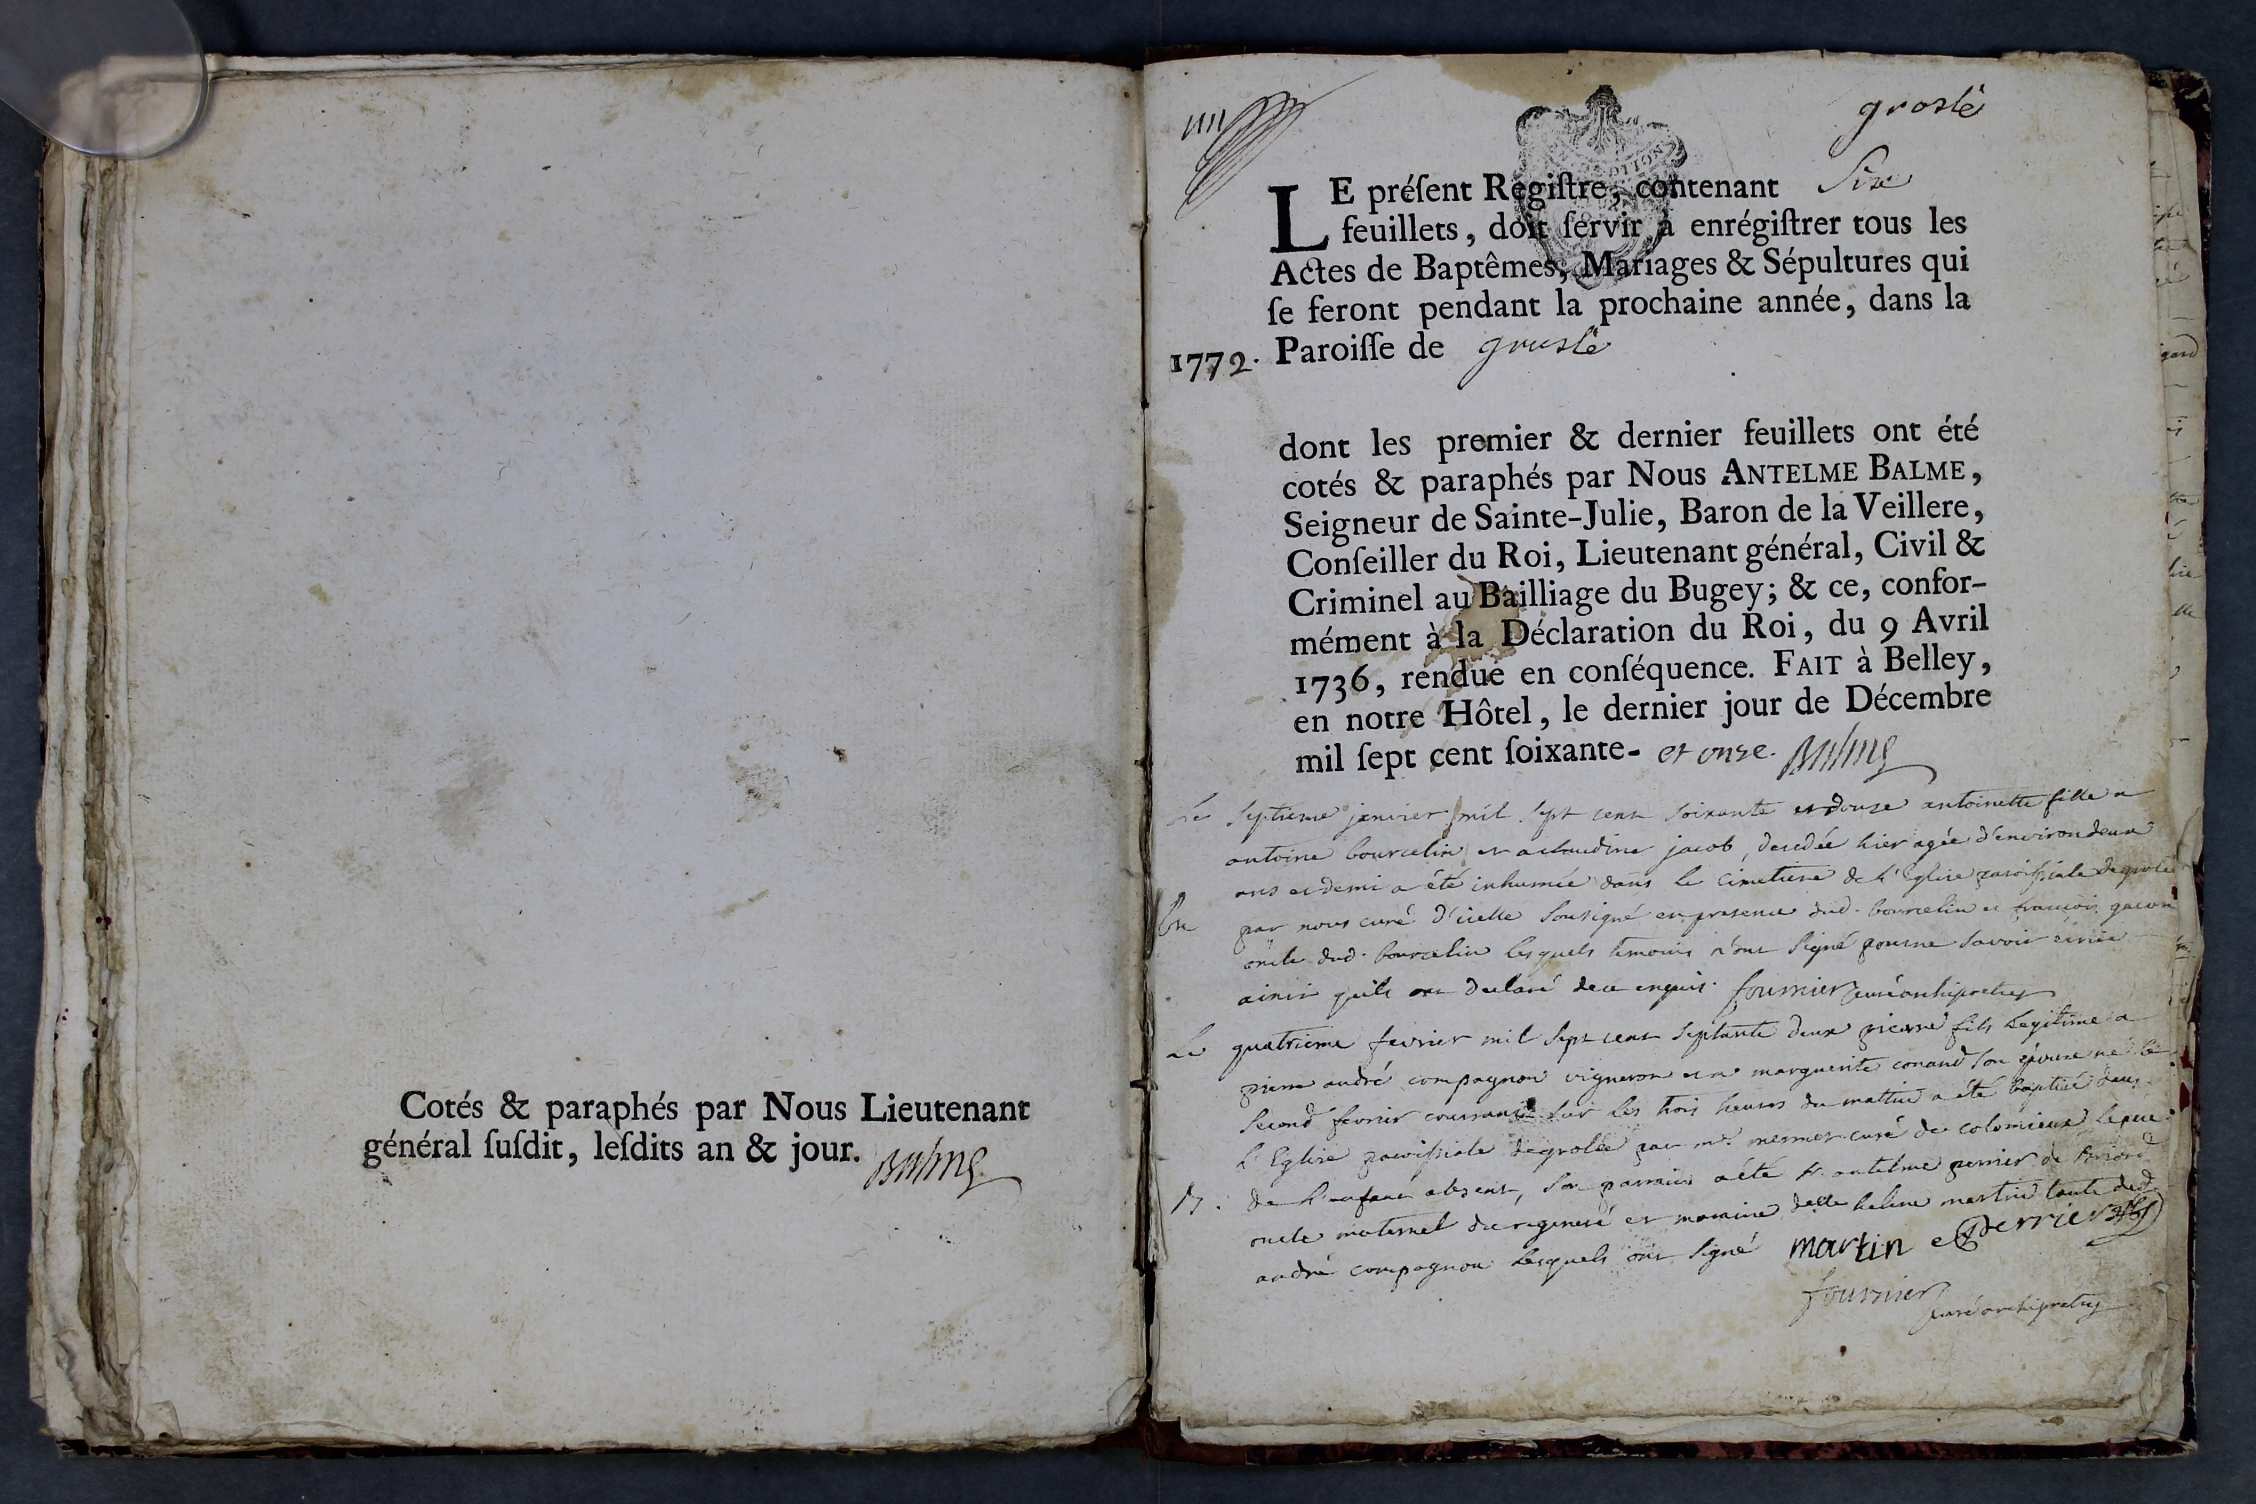 Cotés & paraphés par Nous Lieutenant
général ſuſdit, leſdits an & jour. Balme
groslé
LE préſent Regiſtre, contenant Six
feuillets, doit ſervir à enrégiſtrer tous les
Actes de Baptêmes, Mariages & Sépultures qui
ſe feront pendant la prochaine année, dans la
1772. Paroiſſe de groslé
dont les premier & dernier feuillets ont été
cotés & paraphés par Nous ANTELME BALME,
Seigneur de Sainte-Julie, Baron de la Veillere,
Conſeiller du Roi, Lieutenant général, Civil &
Criminel au Bailliage du Bugey; & ce, confor-
mément à la Déclaration du Roi, du 9 Avril
1736, rendue en conſéquence. FAIT à Belley,
en notre Hôtel, le dernier jour de Décembre
mil ſept cent ſoixante- et onze. Balme
Le septieme janvier mil sept cent soixante et douze antoinette fille a
antoine bourcelin et a claudine jacob, decedée hier agée d'environ deux
ans et demi a été inhumée dans le cimetiere de l'eglise paroissiale de grolée
par nous curé d'icelle sousigné en presence dud. bourcelin et françois gacon
oncle dud. bourcelin lesquels temoins n'ont signé pour ne savoir ecrire
ainsi quils ont declaré de ce enquis. fournier curé archipretre
Le quatrieme fevrier mil sept cent septante deux pierre fils legitime a
pierre andré compagnon vigneron et a marguerite conand son epouse né le
second fevrier courrant sur les trois heures du mattin a été baptisé dans
l'Eglise paroissiale de grolée par mr. mermet curé de colomieux le pere
B. de l'enfant absent, son parrain a été sr. antelme perrier de briord
oncle maternel du regeneré et maraine delle helene martin tante dud.
andré compagnon lesquels ont signé martin Perrier
fournier
curé archipretre